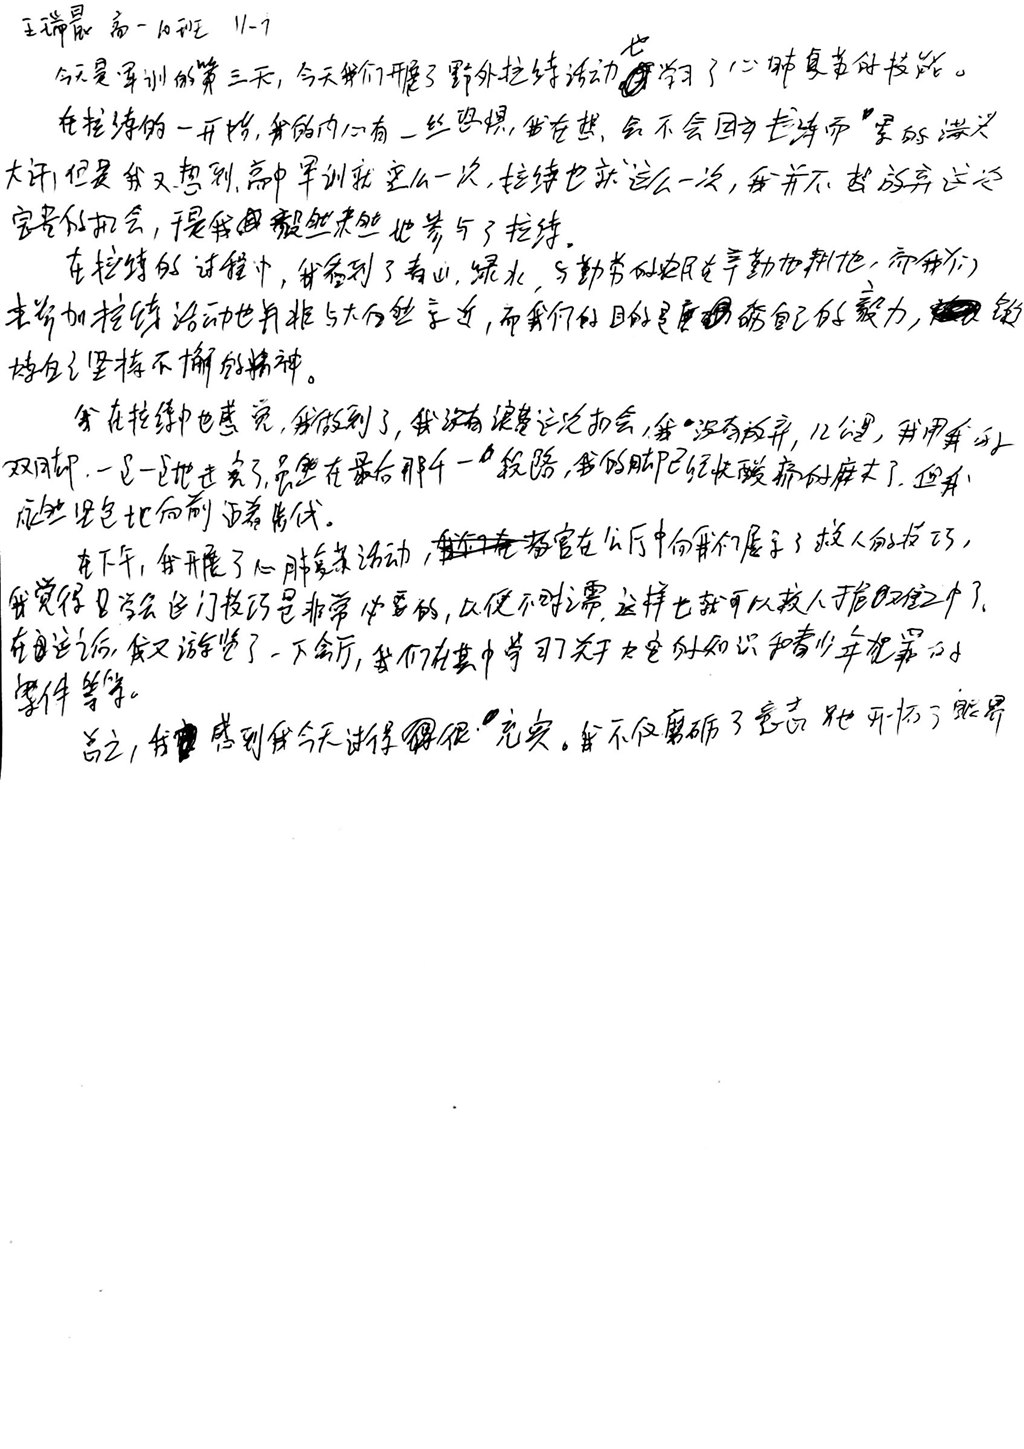 王瑞晨 高一10班 11-7
今天是军训的第三天，今天我们开展了野外拉练活动也学习了心肺复苏的技能。
在拉练的一开始，我的内心有一丝恐惧，我在想，会不会因为拉练而累的满头
大汗，但是我又想到，高中军训就这么一次，拉练也就这么一次，我并不想放弃这次
宝贵的机会，于是我毅然决然地参与了拉练。
在拉练的过程中，我看到了青山，绿水，与勤劳的农民在辛勤地耕地，而我们
来参加拉练活动也并非与大自然亲近，而我们的目的是磨砺自己的毅力，锻
炼自己坚持不懈的精神。
我在拉练中也感觉，我做到了，我没有浪费这次机会，我没有放弃，12公里，我用我的
双脚，一步一步地走完了，虽然在最后那个一段路，我的脚已经快酸痛的麻木了，但我
依然坚定地向前迈着步伐。
在下午，我开展了心肺复苏活动，教官在公厅中向我们展示了救人的技巧，
我觉得学会这门技巧是非常必要的，以便不时之需，这样也就可以救人于危难之中了。
在这之后，我又游览了一下会厅，我们在其中学习了关于的知识和青少年犯罪的
案件等等。
总之，我感到我今天过得很充实。我不仅磨砺了意志也开拓了眼界